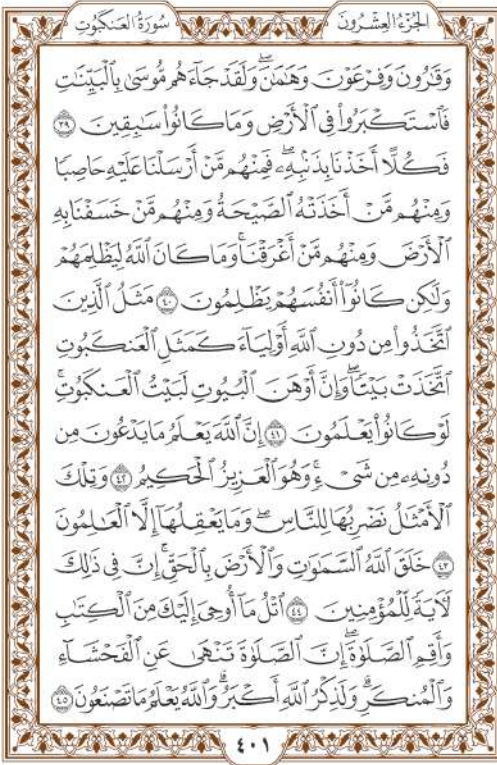 الجُزْءُ العِشْرُونَ سُورَةُ العَنكَبُوتِ
وَقَٰرُونَ وَفِرْعَوْنَ وَهَٰمَٰنَۖ وَلَقَدْ جَآءَهُم مُّوسَىٰ بِٱلْبَيِّنَٰتِ
فَٱسْتَكْبَرُوا۟ فِى ٱلْأَرْضِ وَمَا كَانُوا۟ سَٰبِقِينَ ٣٩
فَكُلًّا أَخَذْنَا بِذَنۢبِهِۦۖ فَمِنْهُم مَّنْ أَرْسَلْنَا عَلَيْهِ حَاصِبًا
وَمِنْهُم مَّنْ أَخَذَتْهُ ٱلصَّيْحَةُ وَمِنْهُم مَّنْ خَسَفْنَا بِهِ
ٱلْأَرْضَ وَمِنْهُم مَّنْ أَغْرَقْنَاۚ وَمَا كَانَ ٱللَّهُ لِيَظْلِمَهُمْ
وَلَٰكِن كَانُوٓا۟ أَنفُسَهُمْ يَظْلِمُونَ ٤٠ مَثَلُ ٱلَّذِينَ
ٱتَّخَذُوا۟ مِن دُونِ ٱللَّهِ أَوْلِيَآءَ كَمَثَلِ ٱلْعَنكَبُوتِ
ٱتَّخَذَتْ بَيْتًاۖ وَإِنَّ أَوْهَنَ ٱلْبُيُوتِ لَبَيْتُ ٱلْعَنكَبُوتِۚ
لَوْ كَانُوا۟ يَعْلَمُونَ ٤١ إِنَّ ٱللَّهَ يَعْلَمُ مَا يَدْعُونَ مِن
دُونِهِۦ مِن شَىْءٍۚ وَهُوَ ٱلْعَزِيزُ ٱلْحَكِيمُ ٤٢ وَتِلْكَ
ٱلْأَمْثَٰلُ نَضْرِبُهَا لِلنَّاسِۖ وَمَا يَعْقِلُهَآ إِلَّا ٱلْعَٰلِمُونَ
٤٣ خَلَقَ ٱللَّهُ ٱلسَّمَٰوَٰتِ وَٱلْأَرْضَ بِٱلْحَقِّۚ إِنَّ فِى ذَٰلِكَ
لَءَايَةً لِّلْمُؤْمِنِينَ ٤٤ ٱتْلُ مَآ أُوحِىَ إِلَيْكَ مِنَ ٱلْكِتَٰبِ
وَأَقِمِ ٱلصَّلَوٰةَۖ إِنَّ ٱلصَّلَوٰةَ تَنْهَىٰ عَنِ ٱلْفَحْشَآءِ
وَٱلْمُنكَرِۗ وَلَذِكْرُ ٱللَّهِ أَكْبَرُۗ وَٱللَّهُ يَعْلَمُ مَا تَصْنَعُونَ ٤٥
٤٠١